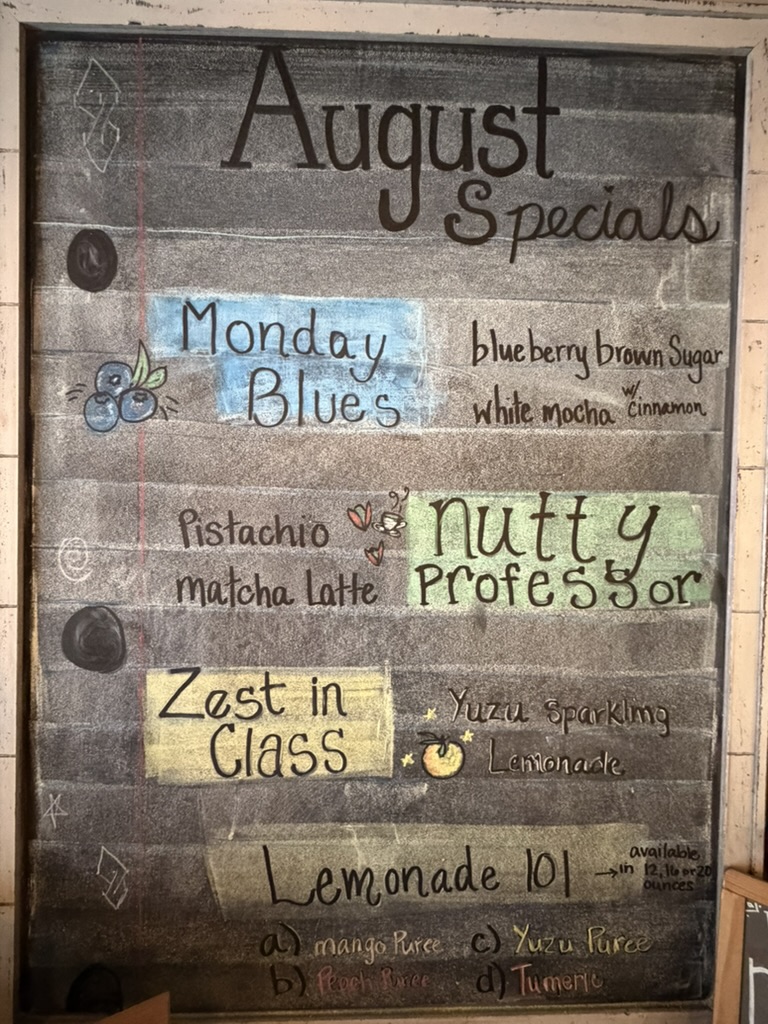 August
Specials
Monday
Blues
blueberry brown Sugar
white mocha w/ cinnamon
Pistachio
matcha Latte
nutty
Professor
Zest in
Class
Yuzu Sparkling
Lemonade
Lemonade 101
→ available
in 12, 16 or 20
ounces
a) mango Puree c) Yuzu Puree
b) Peach Puree d) Tumeric